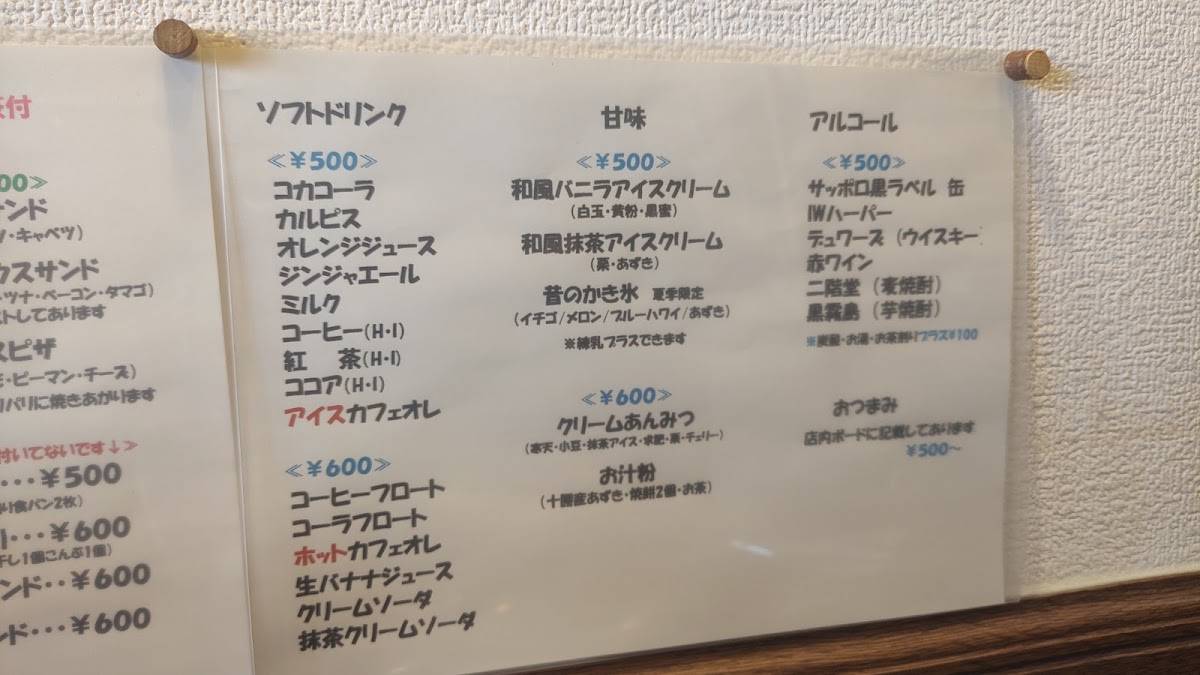 付
00≫
ンド
・キャベツ)
クスサンド
・ツナ・ベーコン・タマゴ)
ストしてあります
スピザ
・ピーマン・チーズ)
パリに焼きあがります
付いてないです↓≫
・・・¥500
り食パン2枚)
・・・¥600
干し1個こんぶ1個)
ンド・・¥600
ンド・・・¥600
ソフトドリンク
≪¥500≫
コカコーラ
カルピス
オレンジジュース
ジンジャエール
ミルク
コーヒー(H・I)
紅 茶(H・I)
ココア(H・I)
アイスカフェオレ
≪¥600≫
コーヒーフロート
コーラフロート
ホットカフェオレ
生バナナジュース
クリームソーダ
抹茶クリームソーダ
甘味
≪¥500≫
和風バニラアイスクリーム
(白玉・黄粉・黒蜜)
和風抹茶アイスクリーム
(栗・あずき)
昔のかき氷 夏季限定
(イチゴ/メロン/ブルーハワイ/あずき)
※練乳プラスできます
≪¥600≫
クリームあんみつ
(寒天・小豆・抹茶アイス・求肥・栗・チェリー)
お汁粉
(十勝産あずき・焼餅2個・お茶)
アルコール
≪¥500≫
サッポロ黒ラベル 缶
IWハーパー
デュワーズ (ウイスキー)
赤ワイン
二階堂 (麦焼酎)
黒霧島 (芋焼酎)
※炭酸・お湯・お茶割りプラス¥100
おつまみ
店内ボードに記載してあります
¥500〜